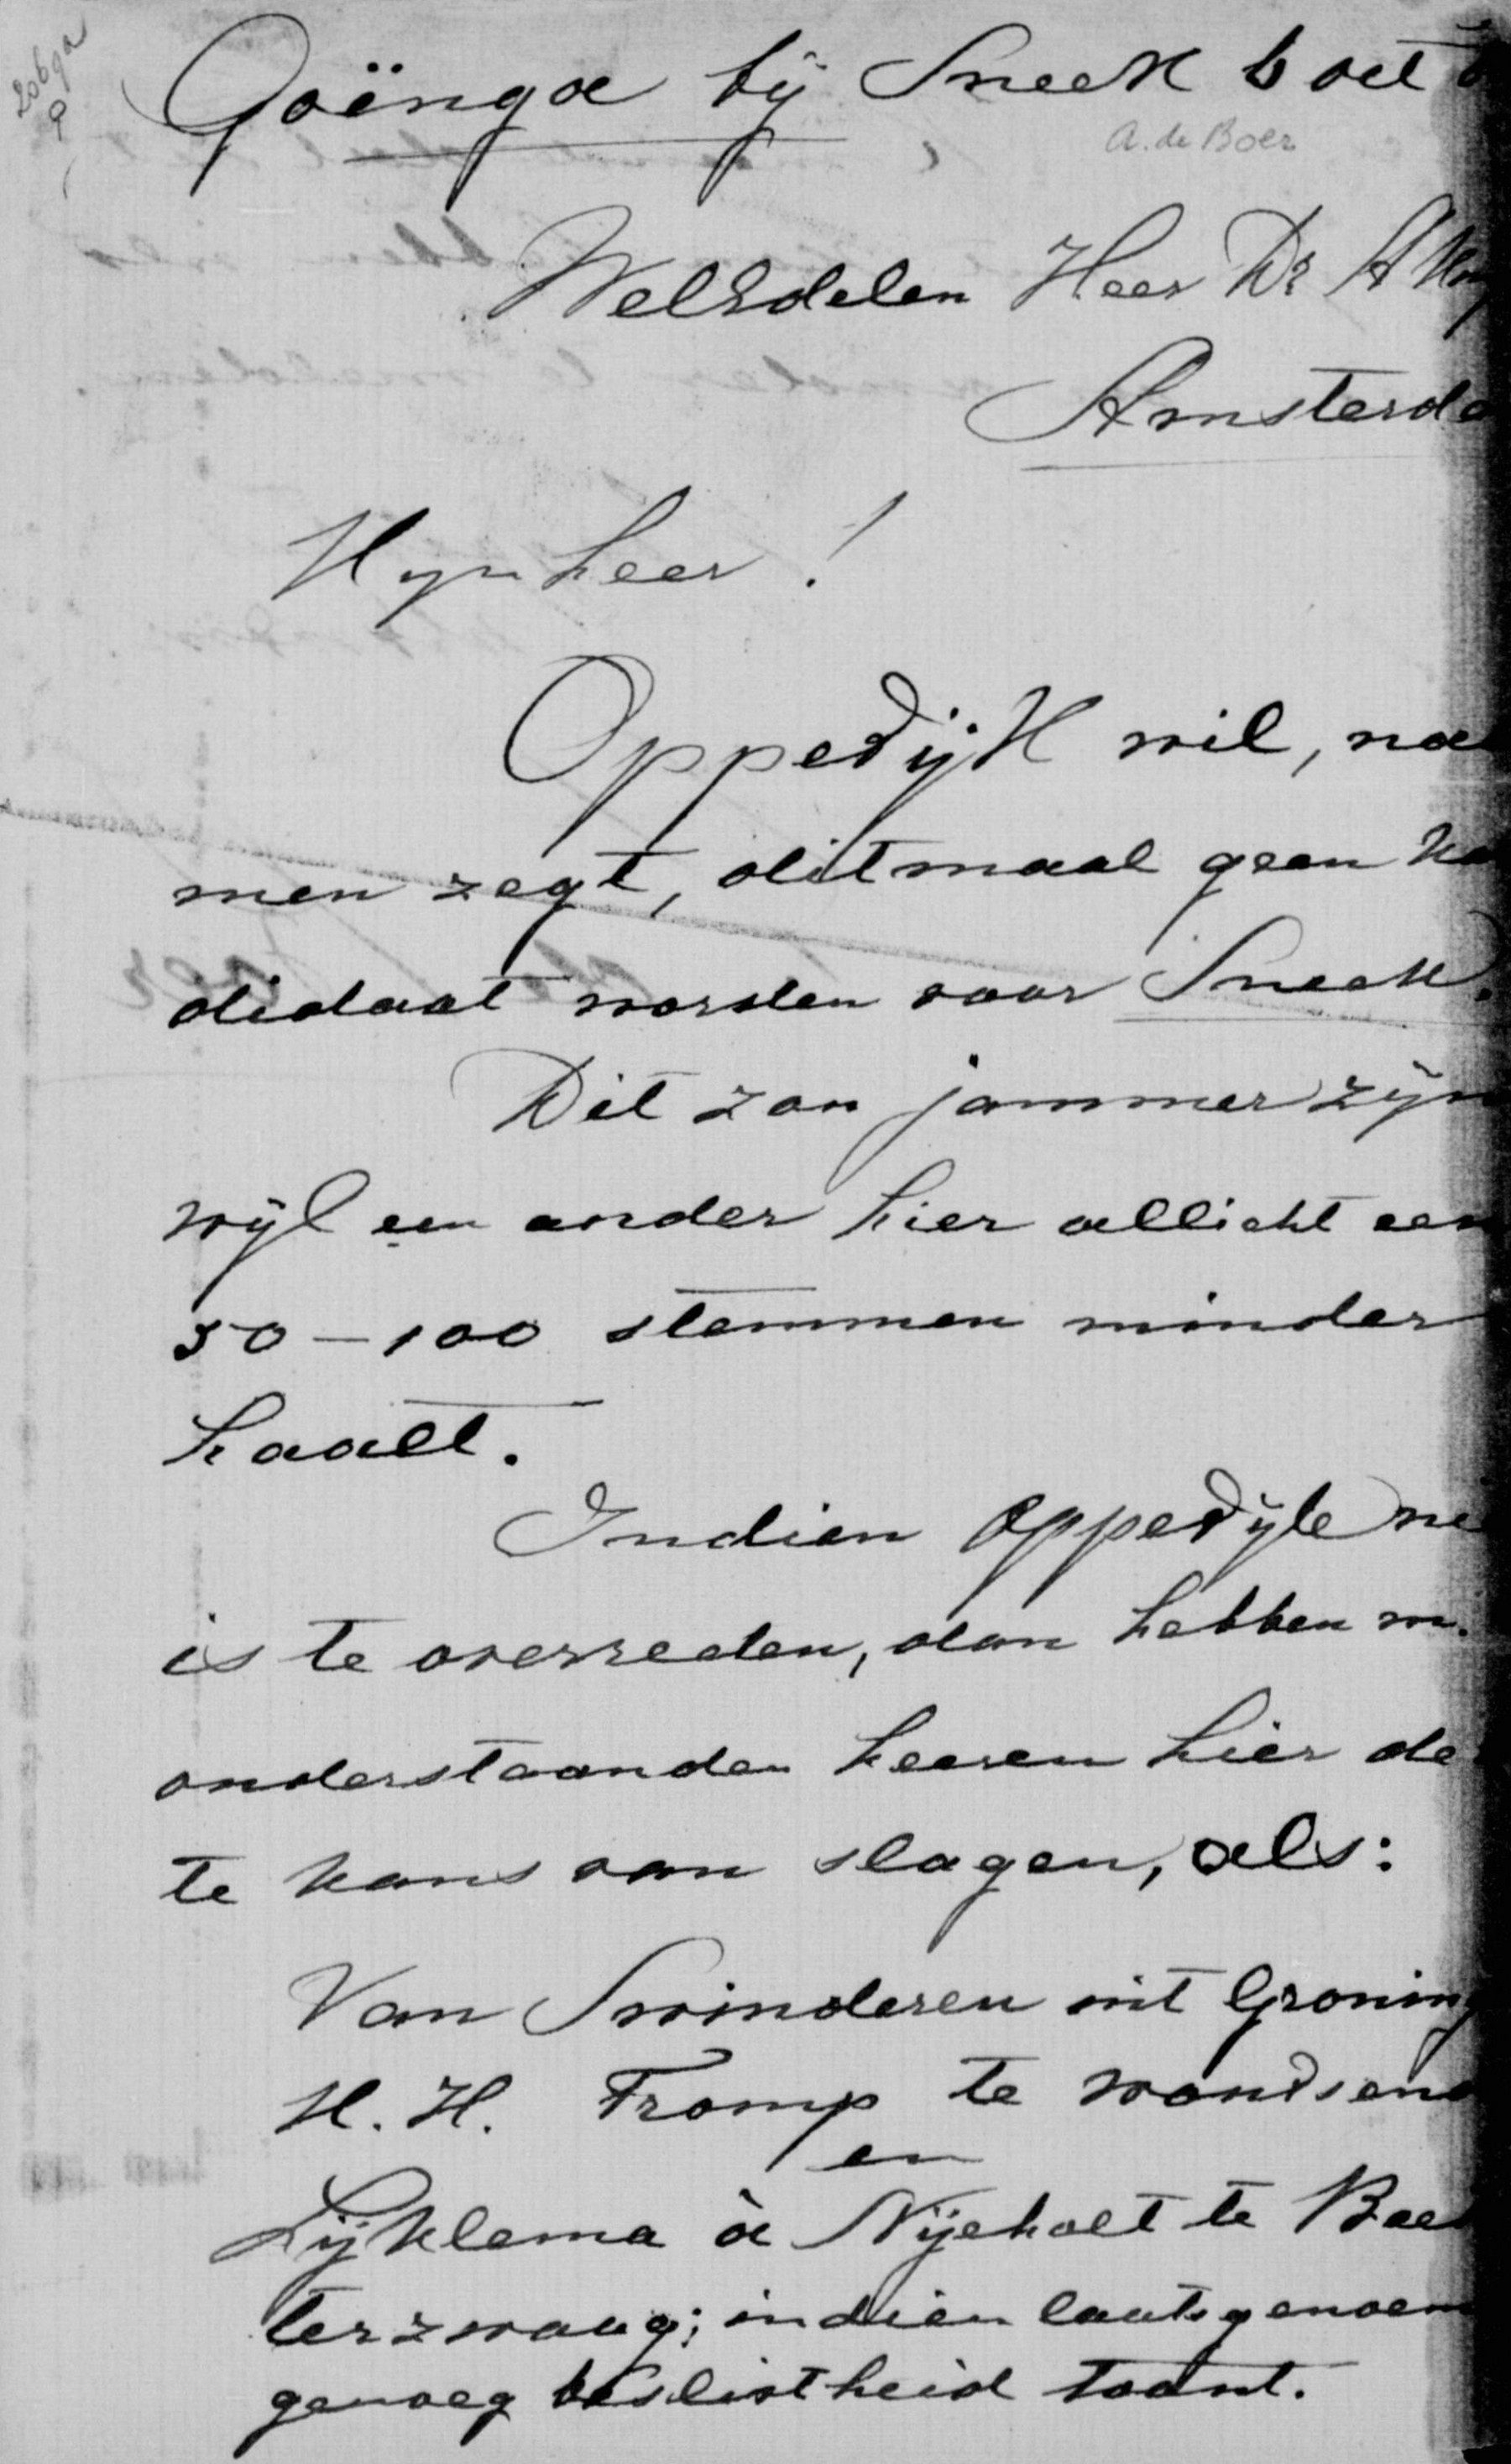 Goënga bij Sneek 6 oct
A. de Boer
WelEdelen Heer Dr A
Amsterda
Mynheer!
Oppedijk wil, na
men zegt, ditmaal geen ka
didaat worden voor Sneek.
Dit zou jammer zijn
wijl een ander hier allicht een
50 – 100 stemmen minder
haalt.
Indien Oppedijk ne
is te overreden, dan hebben
onderstaanden heeren hier de
te kans van slagen, als:
Van Swinderen uit Groning
H. H. Tromp te Woudsend
en
Lijklema à Nijeholt te Beet
terzwaag; indien laatsgenoem
genoeg beslistheid toont.